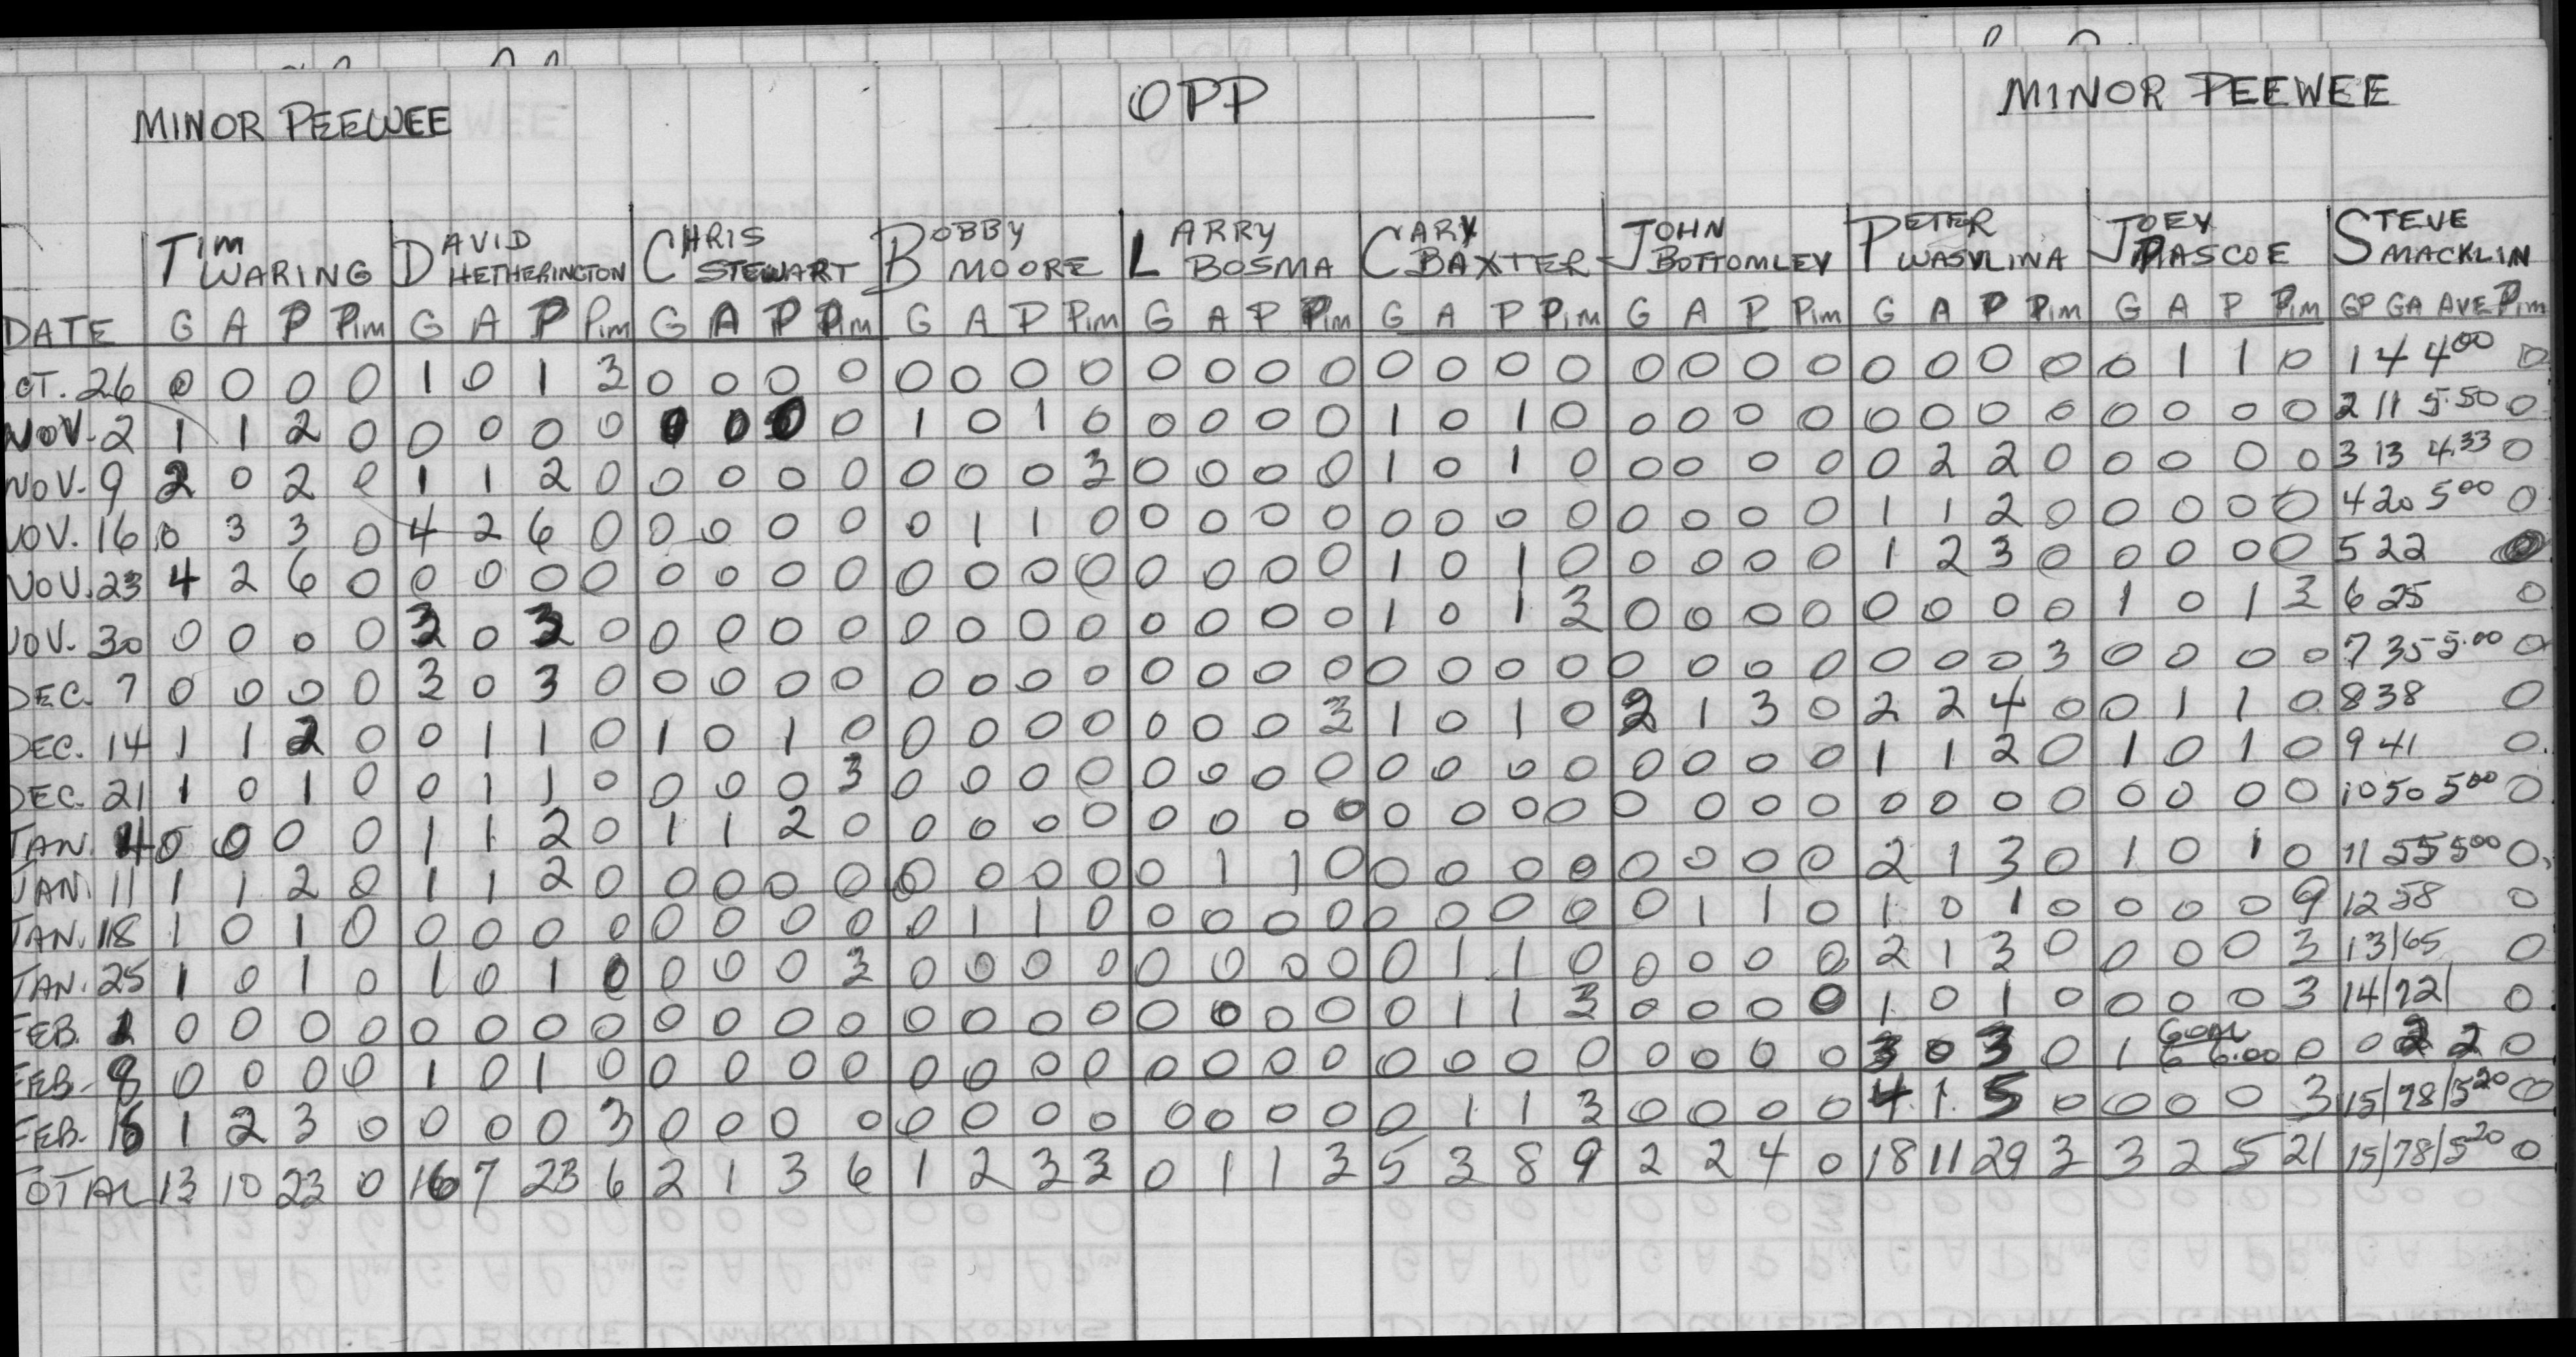 MINOR PEEWEE OPP MINOR PEEWEE
TIM WARING DAVID HETHERINGTON CHRIS STEWART BOBBY MOORE LARRY BOSMA CARY BAXTER JOHN BOTTOMLEY PETER WASYLINA JOEY PASCOE STEVE MACKLIN
DATE G A P Pim G A P Pim G A P Pim G A P Pim G A P Pim G A P Pim G A P Pim G A P Pim G A P Pim GP GA AVE Pim
OCT. 26 0 0 0 0 1 0 1 3 0 0 0 0 0 0 0 0 0 0 0 0 0 0 0 0 0 0 0 0 0 0 0 0 0 1 1 0 1 4 4.00 0
NOV. 2 1 1 2 0 0 0 0 0 0 0 0 0 1 0 1 0 0 0 0 0 1 0 1 0 0 0 0 0 0 0 0 0 0 0 0 0 2 11 5.50 0
NOV. 9 2 0 2 0 1 1 2 0 0 0 0 0 0 0 0 3 0 0 0 0 1 0 1 0 0 0 0 0 0 2 2 0 0 0 0 0 3 13 4.33 0
NOV. 16 0 3 3 0 4 2 6 0 0 0 0 0 0 1 1 0 0 0 0 0 0 0 0 0 0 0 0 0 1 1 2 0 0 0 0 0 4 20 5.00 0
NOV. 23 4 2 6 0 0 0 0 0 0 0 0 0 0 0 0 0 0 0 0 0 1 0 1 0 0 0 0 0 1 2 3 0 0 0 0 0 5 22 0
NOV. 30 0 0 0 0 3 0 3 0 0 0 0 0 0 0 0 0 0 0 0 0 1 0 1 3 0 0 0 0 0 0 0 0 1 0 1 3 6 25 0
DEC. 7 0 0 0 0 3 0 3 0 0 0 0 0 0 0 0 0 0 0 0 0 0 0 0 0 0 0 0 0 0 0 0 3 0 0 0 0 7 35 5.00 0
DEC. 14 1 1 2 0 0 1 1 0 1 0 1 0 0 0 0 0 0 0 0 3 1 0 1 0 2 1 3 0 2 2 4 0 0 1 1 0 8 38 0
DEC. 21 1 0 1 0 0 1 1 0 0 0 0 3 0 0 0 0 0 0 0 0 0 0 0 0 0 0 0 0 1 1 2 0 1 0 1 0 9 41 0
JAN. 4 0 0 0 0 1 1 2 0 1 1 2 0 0 0 0 0 0 0 0 0 0 0 0 0 0 0 0 0 0 0 0 0 0 0 0 0 10 50 5.00 0
JAN. 11 1 1 2 0 1 1 2 0 0 0 0 0 0 0 0 0 0 1 1 0 0 0 0 0 0 0 0 0 2 1 3 0 1 0 1 0 11 55 5.00 0
JAN. 18 1 0 1 0 0 0 0 0 0 0 0 0 0 1 1 0 0 0 0 0 0 0 0 0 0 1 1 0 1 0 1 0 0 0 0 9 12 58 0
JAN. 25 1 0 1 0 1 0 1 0 0 0 0 3 0 0 0 0 0 0 0 0 0 1 1 0 0 0 0 0 2 1 3 0 0 0 0 3 13/65 0
FEB. 1 0 0 0 0 0 0 0 0 0 0 0 0 0 0 0 0 0 0 0 0 0 1 1 3 0 0 0 0 1 0 1 0 0 0 0 3 14/72/ 0
FEB. 8 0 0 0 0 1 0 1 0 0 0 0 0 0 0 0 0 0 0 0 0 0 0 0 0 0 0 0 0 3 0 3 0 1 Goal 6 6.00 0 0 2 2 0
FEB. 15 1 2 3 0 0 0 0 3 0 0 0 0 0 0 0 0 0 0 0 0 0 1 1 3 0 0 0 0 4 1 5 0 0 0 0 3 15/78/5.20 0
TOTAL 13 10 23 0 16 7 23 6 2 1 3 6 1 2 3 3 0 1 1 3 5 3 8 9 2 2 4 0 18 11 29 3 3 2 5 21 15/78/5.20 0